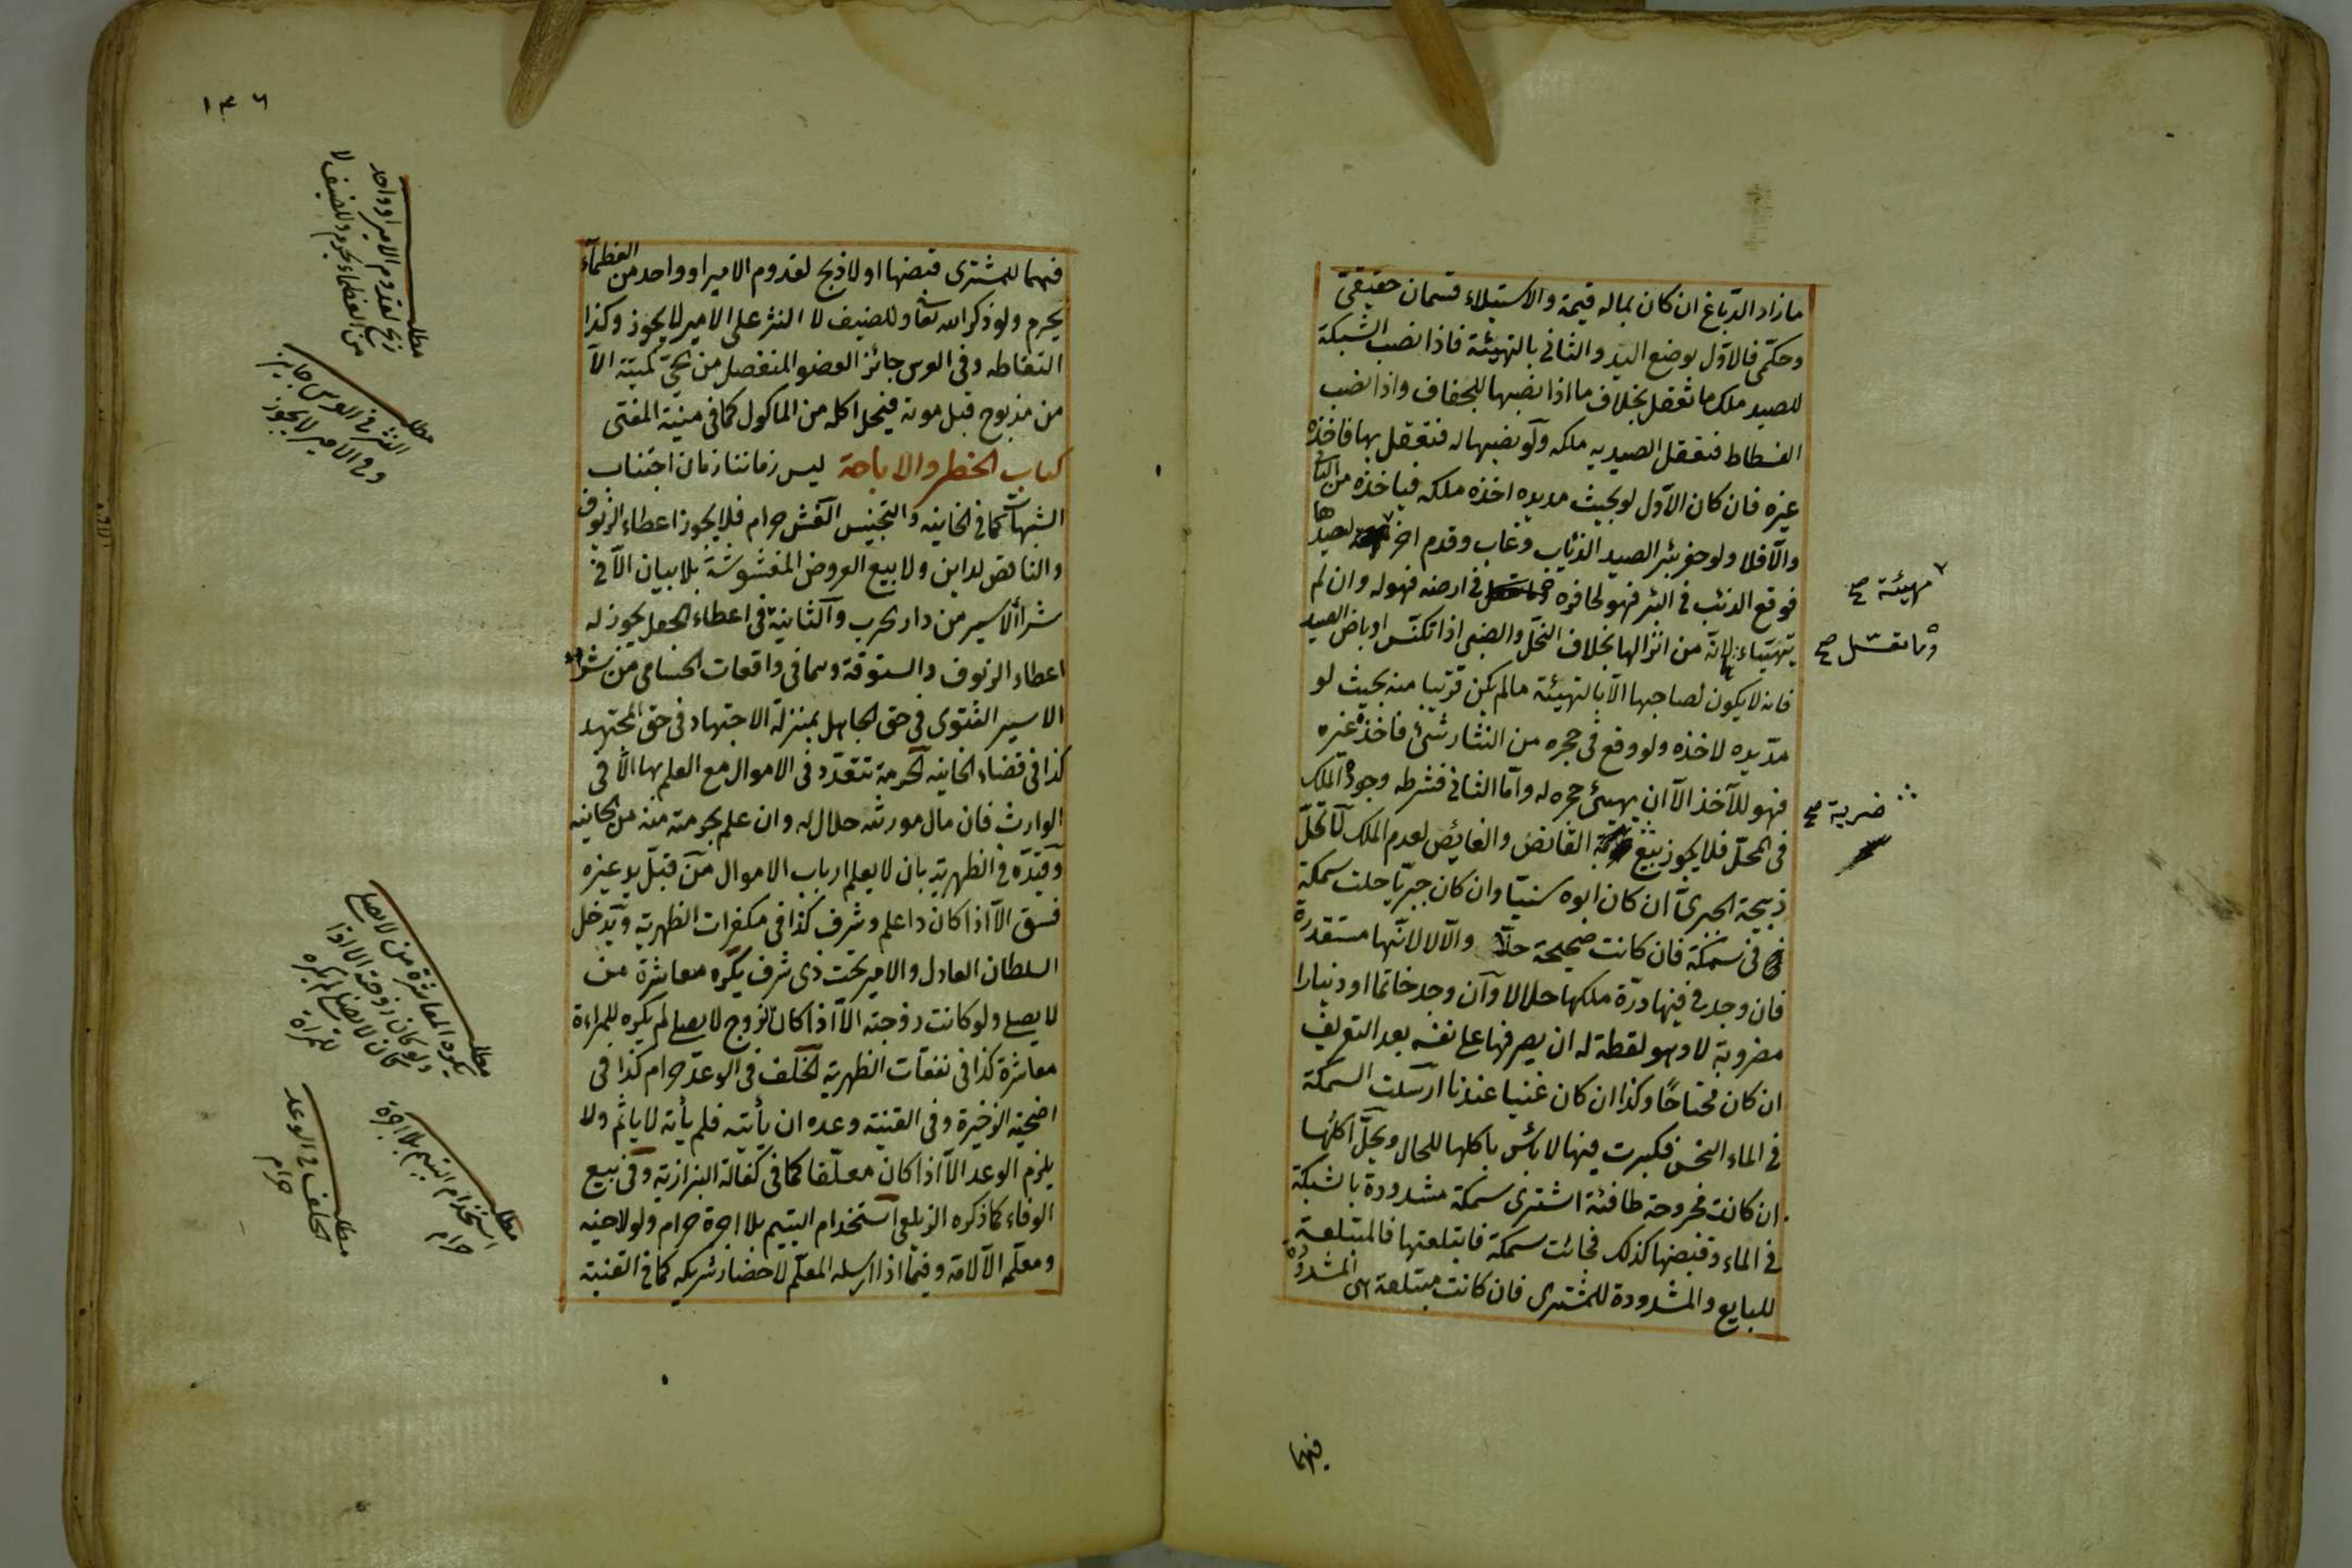 ما زاد الدباغ ان كان بماله قيمة والاستيلاء قسمان حقيقى
وحكمى فالاول بوضع اليد والثانى بالتهيئة فاذا نصب الشبكة
للصيد ملك ما تعقل بخلاف ما اذا نصبها للجفاف واذا نصب
الفسطاط فتعقل الصيد به ملكه ولو نصبها له فتعقل بها فاخذه
غيره فان كان الاول لو بحيث مد يده اخذه ملكه فياخذه من الثانى
والا فلا ولو حفر بئر الصيد الذئاب وغاب وقدم اخر لصيدها
فوقع الذئب فى البئر فهو لحافره فى ارضه فهو له وان لم
يتهيّاء لانه من انزالها بخلاف النحل والضبى اذا تكنس او باض الصيد
فانه لا يكون لصاحبها الا بالتهيئة ما لم يكن قريبا منه بحيث لو
مد يده لاخذه ولو وقع فى حجره من النثار شئ فاخذه غيره
فهو للآخذ الا ان يهيئ حجره له واما الثانى فشرطه وجود الملك
فى المحل فلا يجوز بيع القانص والغايص لعدم الملك لا تحل
ذبيحة الجبرى ان كان ابوه سنيا وان كان جبريا حلت سمكة
فى سمكة فان كانت صحيحة حلا والا لا لانها مستقذرة
فان وجد فيها درة ملكها حلالا وان وجد خاتما او دينارا
مضروبة لا وهو لقطة له ان يصرفها على نفسه بعد التعريف
ان كان محتاجا وكذا ان كان غنيا عندنا ارسلت السمكة
فى الماء النجس فكبرت فيها لا بئس باكلها للحال ويحل اكلها
ان كانت مجروحة طافئة اشترى سمكة مشدودة بالشبكة
فى الماء وقبضها كذلك فجائت سمكة فابتلعتها فالمبتلعة
للبايع والمشدودة للمشترى فان كانت مبتلعة هى المشدودة
فيهما
مهيئة صح
ضربة صح
١٣٦
فهما للمشترى قبضها اولا ذبح لقدوم الامير او واحد من العظماء
يحرم ولو ذكر الله تعالى وللضيف لا النثر على الامير لا يجوز وكذا
التقاطه وفى العرس جائز العضو المنفصل من الحى كميتة الا
من مذبوح قبل موته فيحل اكله من الماكول كما فى منية المفتى
كتاب الحظر والاباحة ليس زماننا زمان اجتناب
الشبهات كما فى الخانيه والتجنيس الغش حرام فلا يجوز اعطاء الزيوف
والناقص لداين ولا بيع العروض المغشوشة بلا بيان الا فى
شراء الاسير من دار الحرب والثانية فى اعطاء الجعل يجوز له
اعطاء الزيوف والستوقة وهما فى واقعات الحسامى من شراء
الاسير الفتوى فى حق الجاهل بمنزلة الاجتهاد فى حق المجتهد
كذا فى قضاء الخانيه الحرمة تتعدد فى الاموال مع العلم بها الا فى
الوارث فان مال مورثه حلال له وان علم بحرمته منه من الخانيه
وقيده فى الظهرية بان لا يعلم ارباب الاموال من قبل يد غيره
فسق الا اذا كان ذا علم وشرف كذا فى مكفرات الظهرية ويدخل
السلطان العادل والامير تحت ذى شرف يكره معاشرة من
لا يصلى ولو كانت زوجته الا اذا كان الزوج لا يصلى لم يكره للمراءة
معاشرة كذا فى نفقات الظهرية الخلف فى الوعد حرام كذا فى
اضحية الذخيرة وفى القنية وعده ان يأتيه فلم يأته لا ياثم ولا
يلزم الوعد الا اذا كان معلقا كما فى كفالة البزازية وفى بيع
الوفاء كما ذكره الزيلعى استخدام اليتيم بلا اجرة حرام ولو لاخيه
ومعلمه الا لامه وفيما اذا ارسله المعلم لاحضار شريكه كما فى القنية
مطلب
ذبح لقدوم الامير او واحد
من العظماء يحرم وللضيف لا
مطلب
النثر فى العرس جايز
وفى الامير لا يجوز
مطلب
يكره المعاشرة من لا يصلى
ولو كان زوجة الا اذا
كان لا يصلى لم يكره
للمراة
مطلب
استخدام اليتيم بلا اجرة
حرام
مطلب
الخلف فى الوعد
حرام